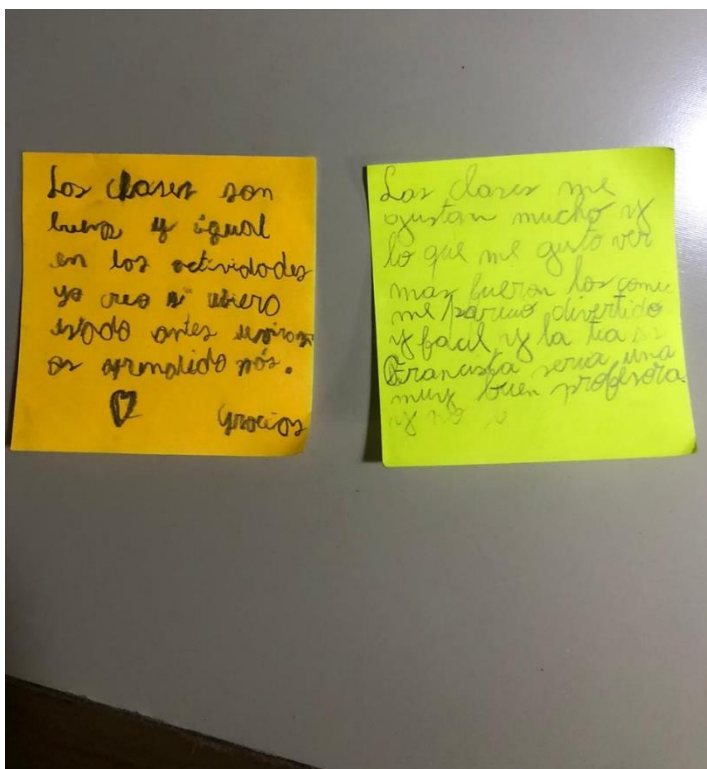 Las clases son
buenas y igual
en las actividades
yo creo si ubiera
estado antes ubiera
aprendido más.
Gracias
Las clases me
gustan mucho y
lo que me guto ver
mas fueron los comic
me parecio divertido
y facil y la tia
Francisca seria una
muy buen profesora
y no